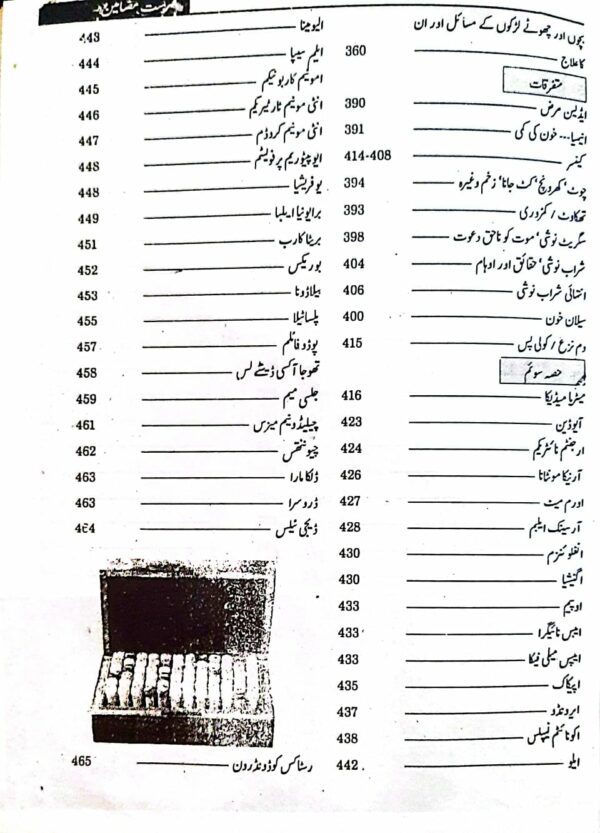 فہرست مضامین
بچوں اور چھوٹے لڑکوں کے مسائل اور ان
کا علاج 360
متفرقات
ایڈیسن مرض 390
انیمیا... خون کی کمی 391
کینسر 408-414
چوٹ، کھرونچ، کٹ جانا، زخم وغیرہ 394
تھکاوٹ / کمزوری 393
سگریٹ نوشی، موت کو ناحق دعوت 398
شراب نوشی، حقائق اور اوہام 404
انتہائی شراب نوشی 406
سیلان خون 400
دم نزع / کولی پس 415
حصہ سوئم
میٹریا میڈیکا 416
آیوڈین 423
ارجنٹم نائٹریکم 424
آرنیکا مونٹانا 426
اورم میٹ 427
آرسینک ایلبم 428
انفلوئنزم 430
اگنیشیا 430
اوپیم 433
ایبس نائیگرا 433
ایپس میلی فیکا 433
اپیکاک 435
ایرونڈو 437
اکونائٹم نیپلس 438
ایلو 442
الیومینا 443
ایلیم سیپا 444
امونیم کاربونیکم 445
انٹی مونیم ٹارٹیریکم 446
انٹی مونیم کروڈم 447
ایوپیٹوریم پرفولیٹم 448
یوفریشیا 448
برایونیا ایلبا 449
بریٹا کارب 451
بوریکس 452
بیلاڈونا 453
پلساٹیلا 455
پوڈوفائلم 457
تھوجا آکسی ڈینٹے لس 458
جلسی میم 459
چیلیڈونیم میزس 461
چیوننتھس 462
ڈلکامارا 463
ڈروسرا 463
ڈیجی ٹیلس 464
رسٹاکس کوڈونڈرون 465